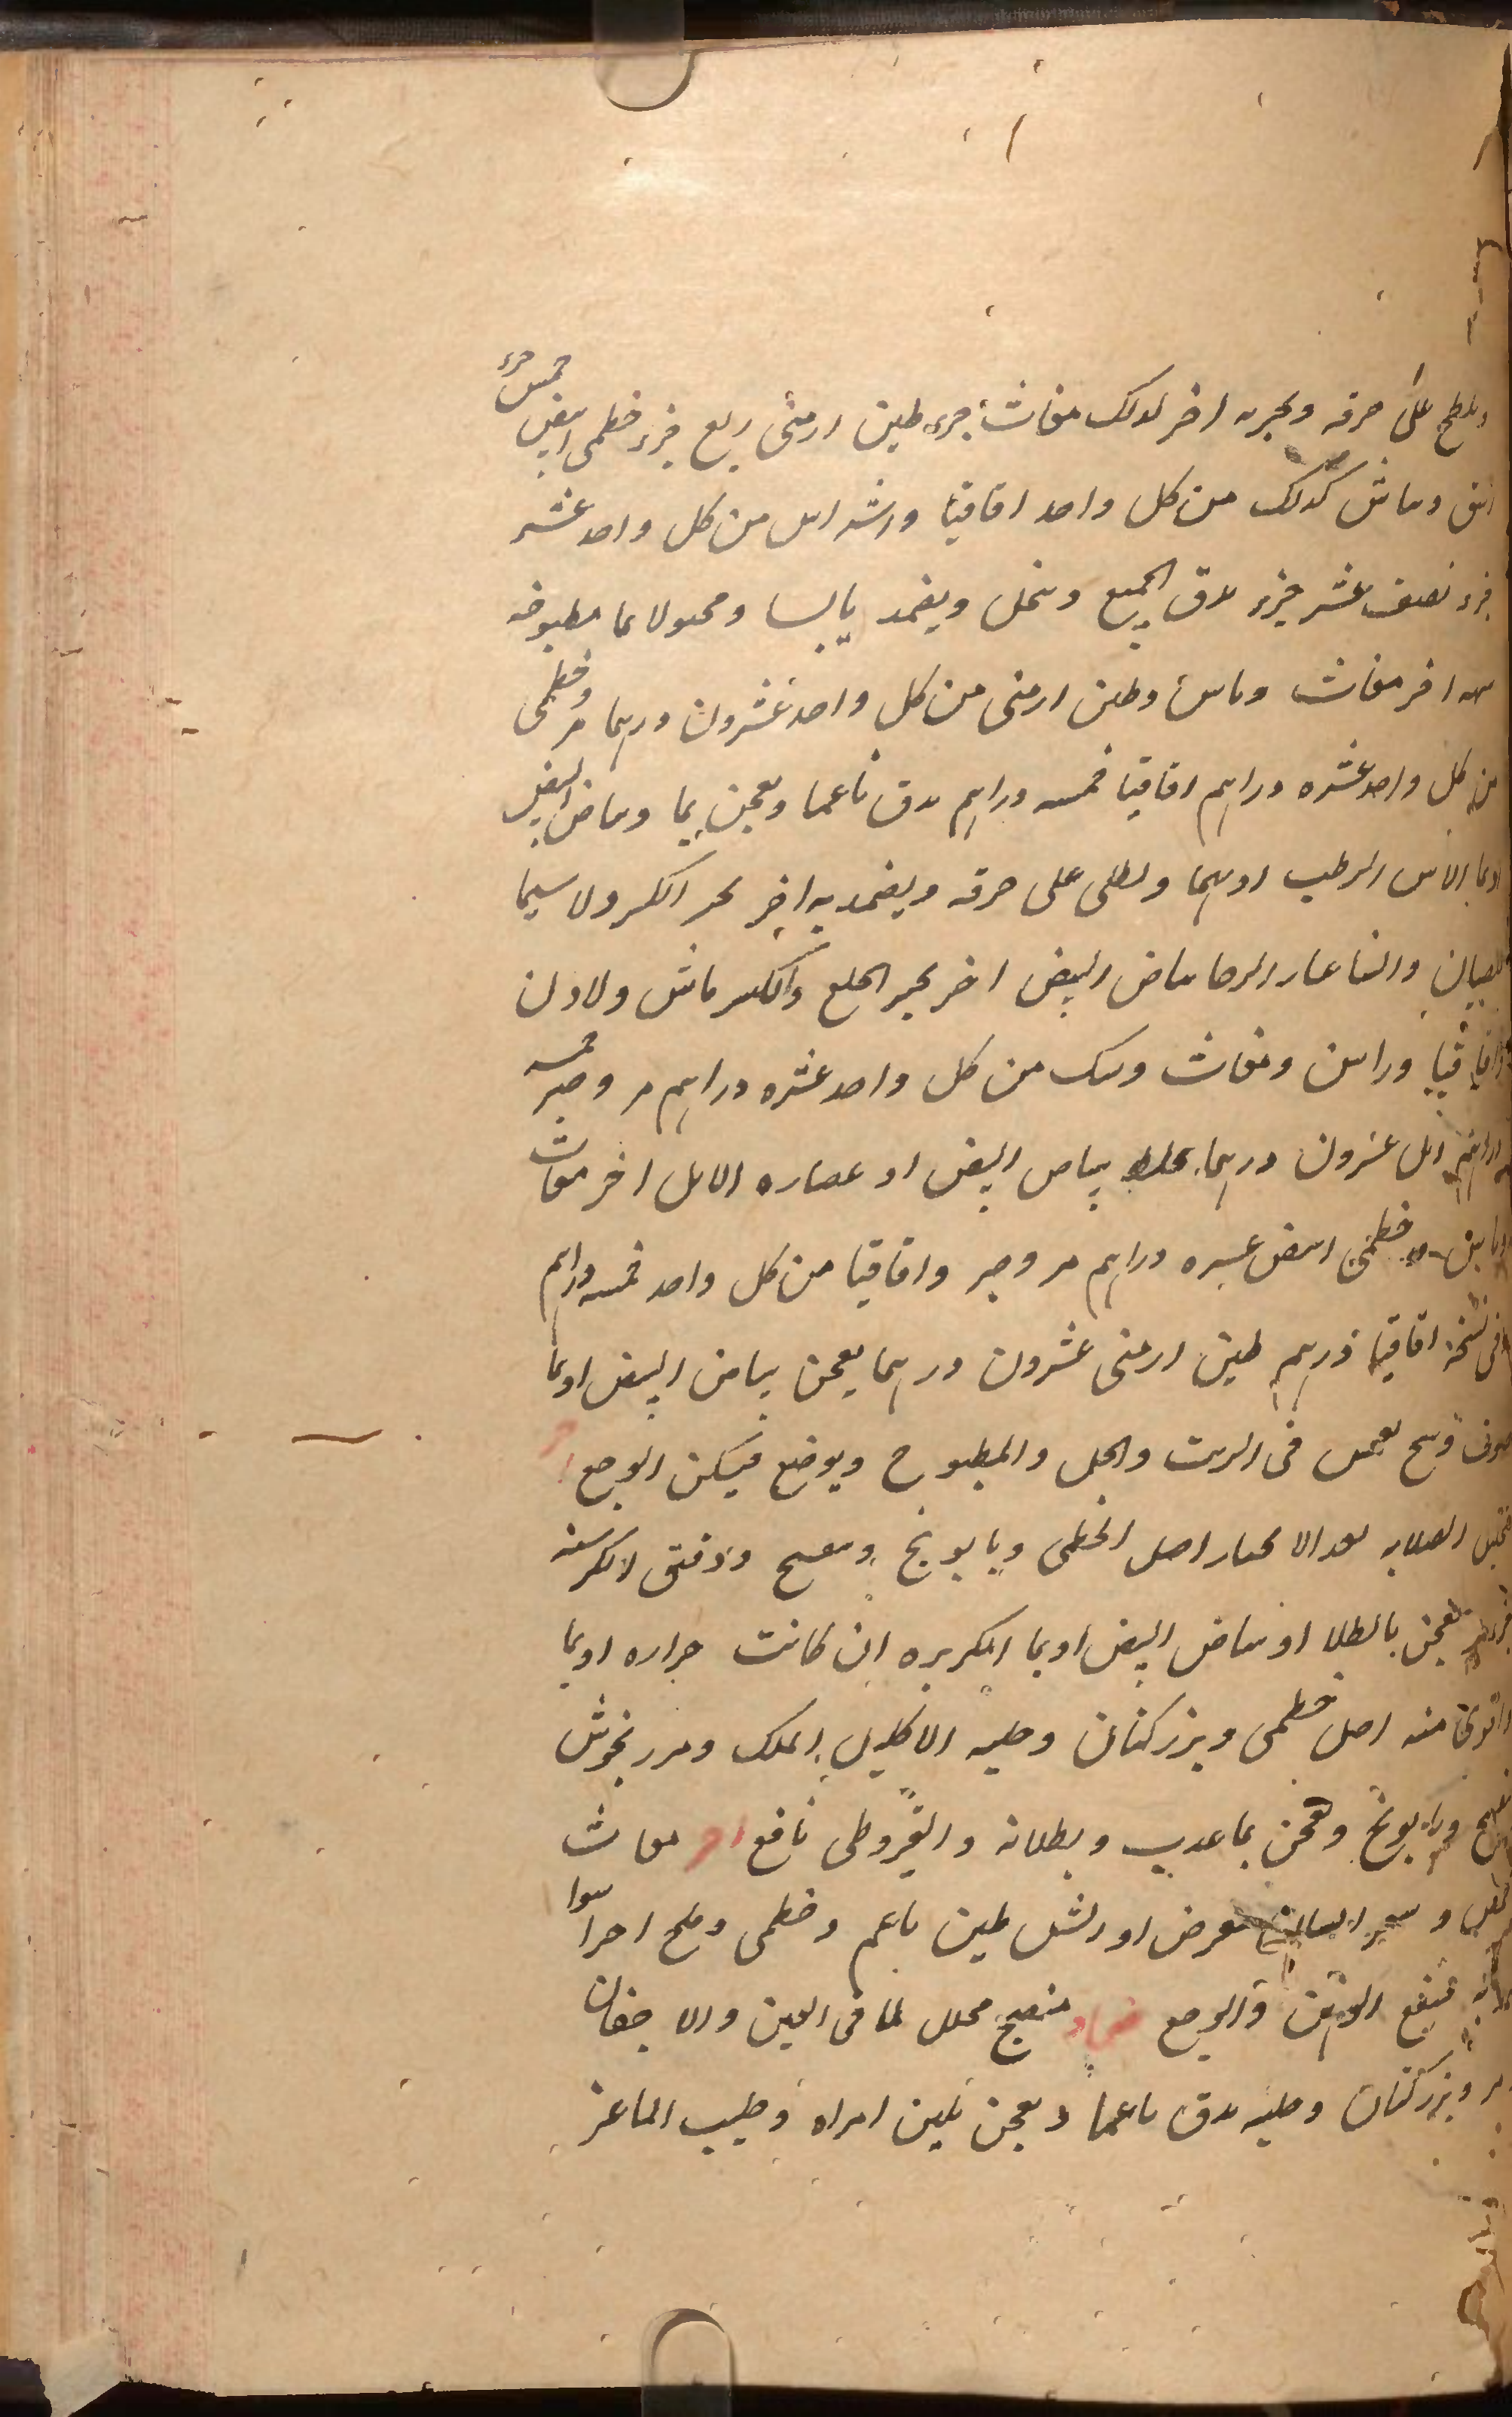 ويلطخ على خرقه ويجبر به اخر كذلك مغاث جزء طين ارمنى ربع جزء خطمى ابيض خمس جزء
وماش كذلك من كل واحد اقاقيا وراشد اس من كل واحد عشر
جزء نصف عشر جزء يدق الجميع وينخل ويضمد يابسا ومحبولا بما مطبوخه
اخر مغاث وماش وطين ارمنى من كل واحد عشرون درهما مر وخطمى
من كل واحد عشره دراهم اقاقيا خمسه دراهم يدق ناعما ويعجن بما وبياض البيض
او بما الاس الرطب او بهما ويطلى على خرقه ويضمد به اخر يجبر الكسر ولا سيما
للصبيان والنسا غبار الرحا ببياض البيض اخر يجبر الخلع والكسر ماش ولادن
واقاقيا وراسن ومغاث وسك من كل واحد عشره دراهم مر وصبر خمسه
دراهم اثل عشرون درهما يخلط ببياض البيض او عصاره الاثل اخر مغاث
وماش وخطمى ابيض عشره دراهم مر وصبر واقاقيا من كل واحد خمسه دراهم
وفى نسخه اقاقيا درهم طين ارمنى عشرون درهما يعجن ببياض البيض او بما
صوف وسخ يغمس فى الزيت والخل والمطبوخ ويوضع فيسكن الوجع اخر
الصلابه بعد الانجبار اصل الخطمى وبابونج وبنفسج ودقيق الكرسنه
يعجن بالطلا او بياض البيض او بما الكزبره ان كانت حراره او بما
واقوى منه اصل خطمى وبزر كتان وحلبه الاكليل الملك ومرزنجوش
وبابونج ويعجن بما عذب وبطلانه والقيروطى نافع اخر مغاث
او رشل طين ناعم وخطمى وملح اجزا سوا
فينفع الوثى والوجع ضماد منضج محلل لما فى العين والاجفان
مر وبزر كتان وحلبه يدق ناعما ويعجن بلبن امراه وحليب الماعز